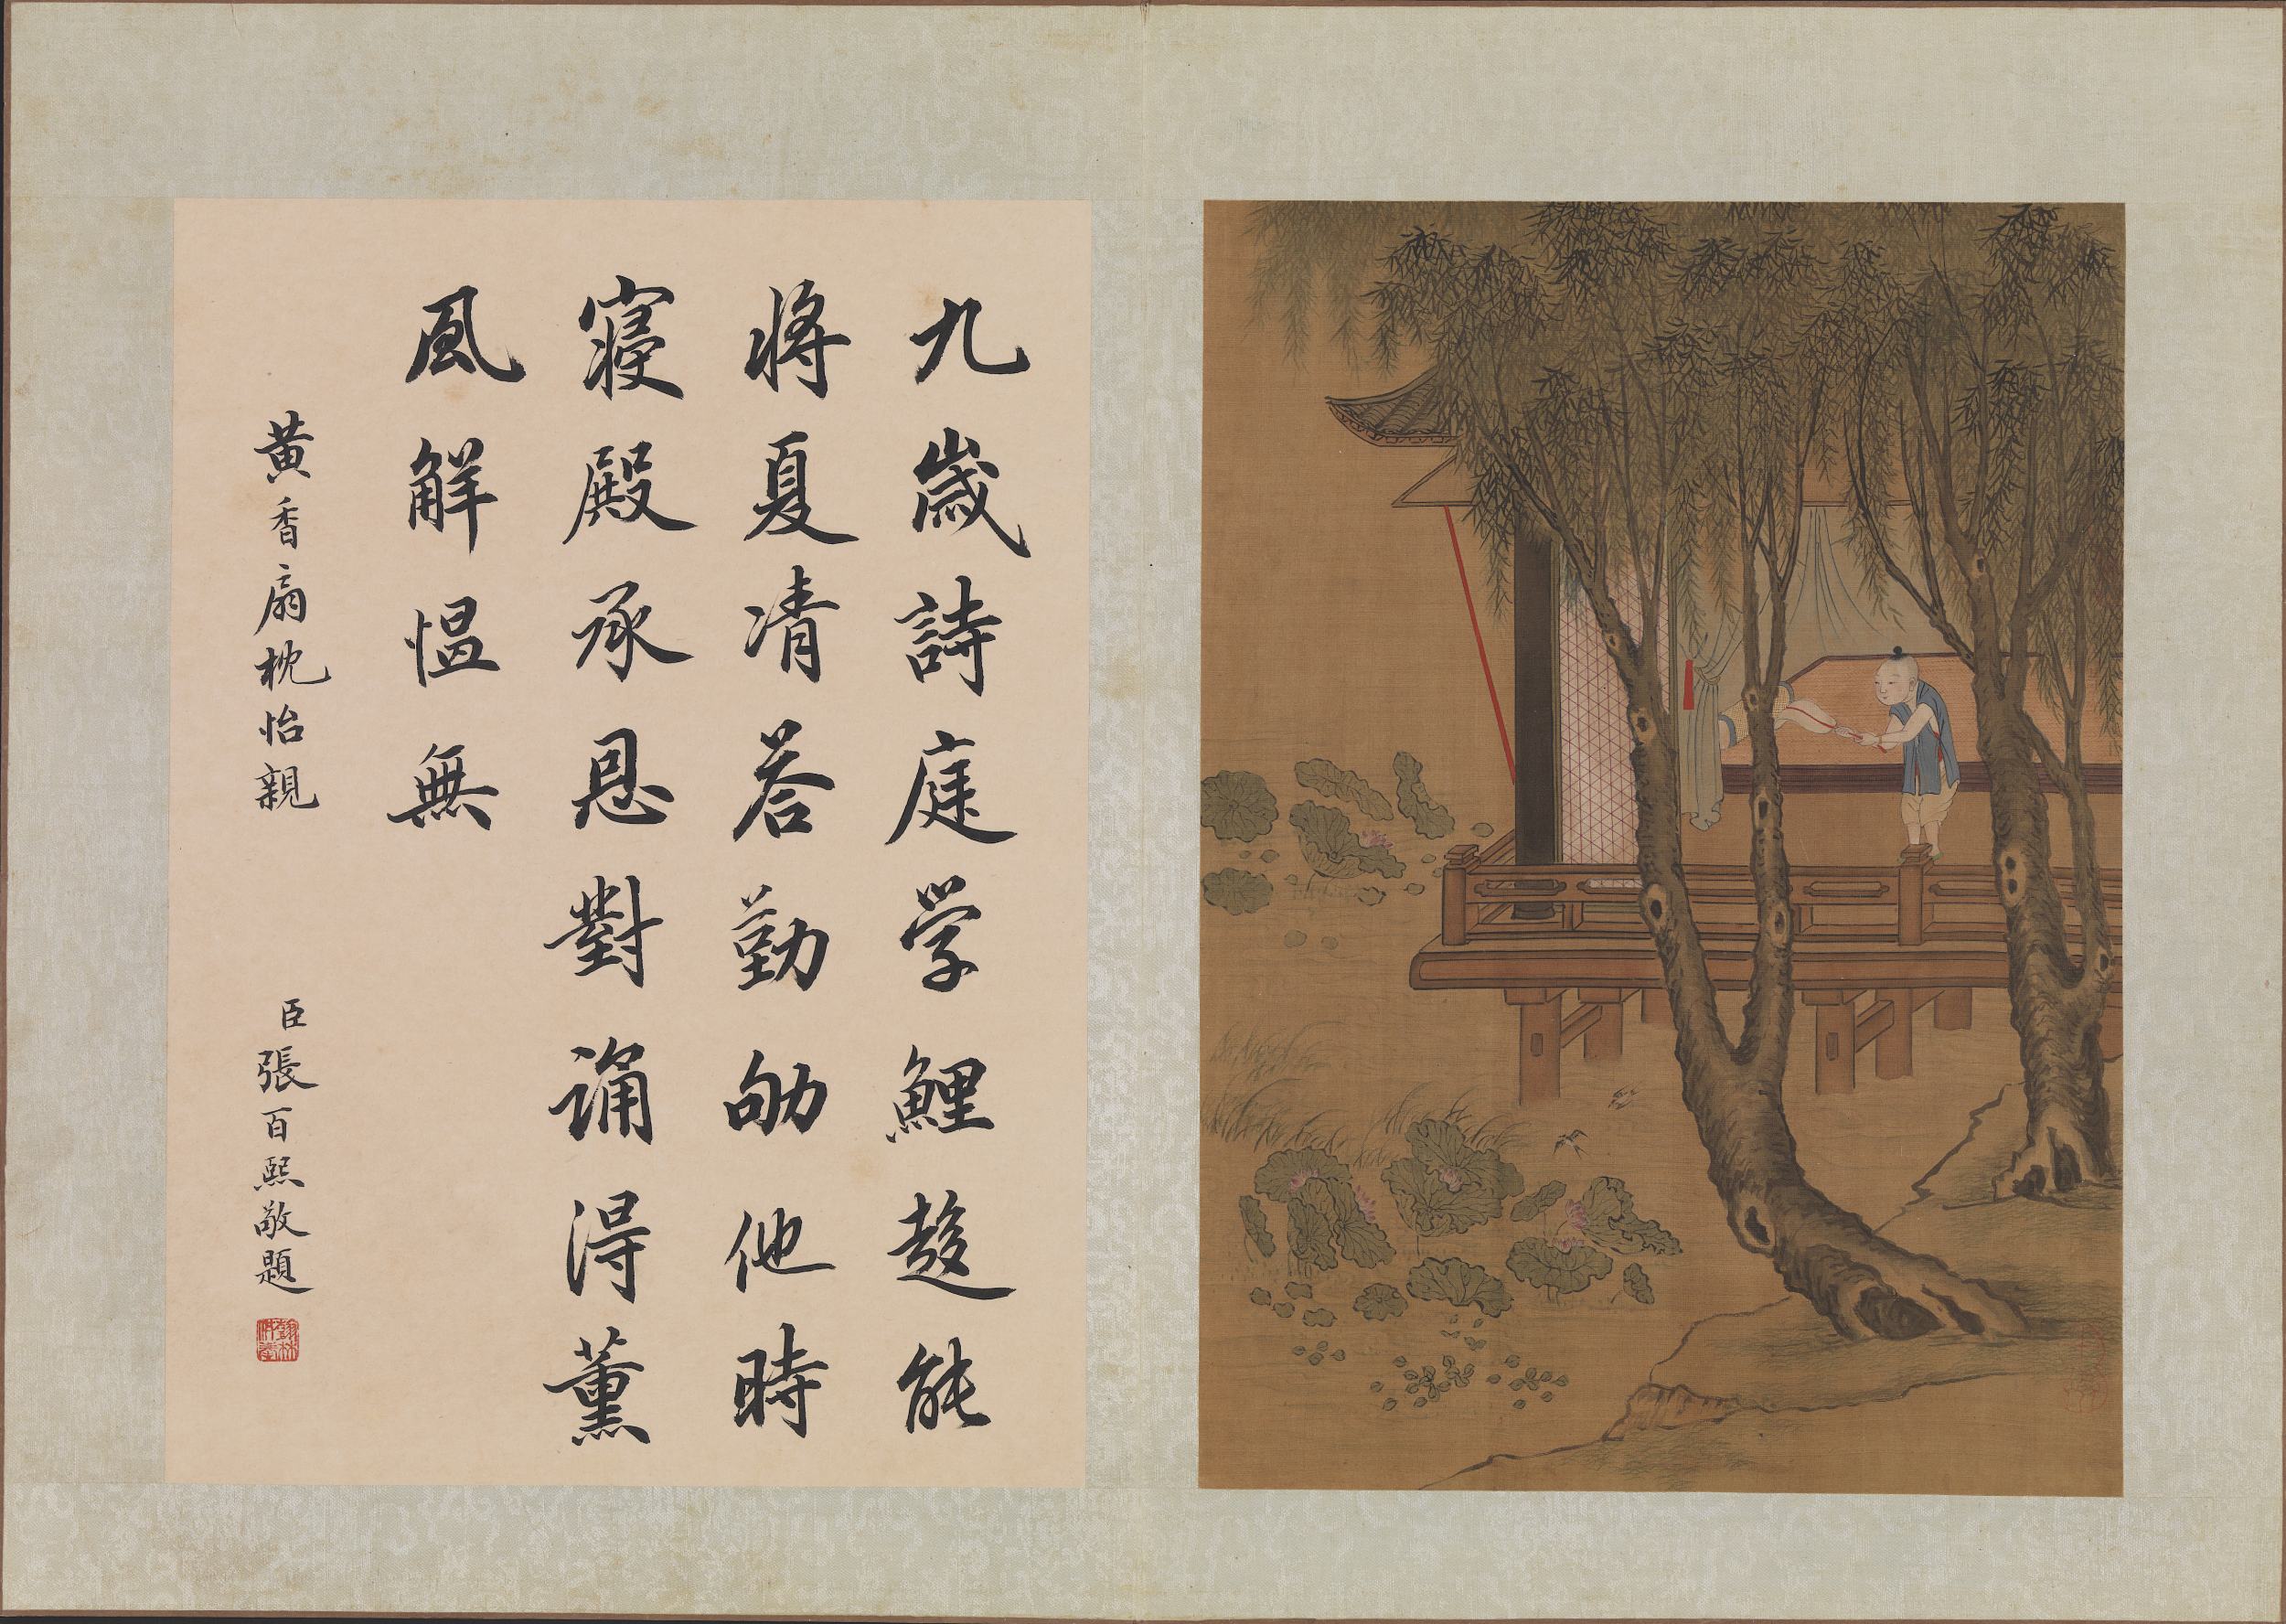 九歲詩庭学鯉趍能
將夏凊荅勤劬他時
寢殿承恩對誦得薰
風解愠無
黄香扇枕怡親
臣張百熙敬題